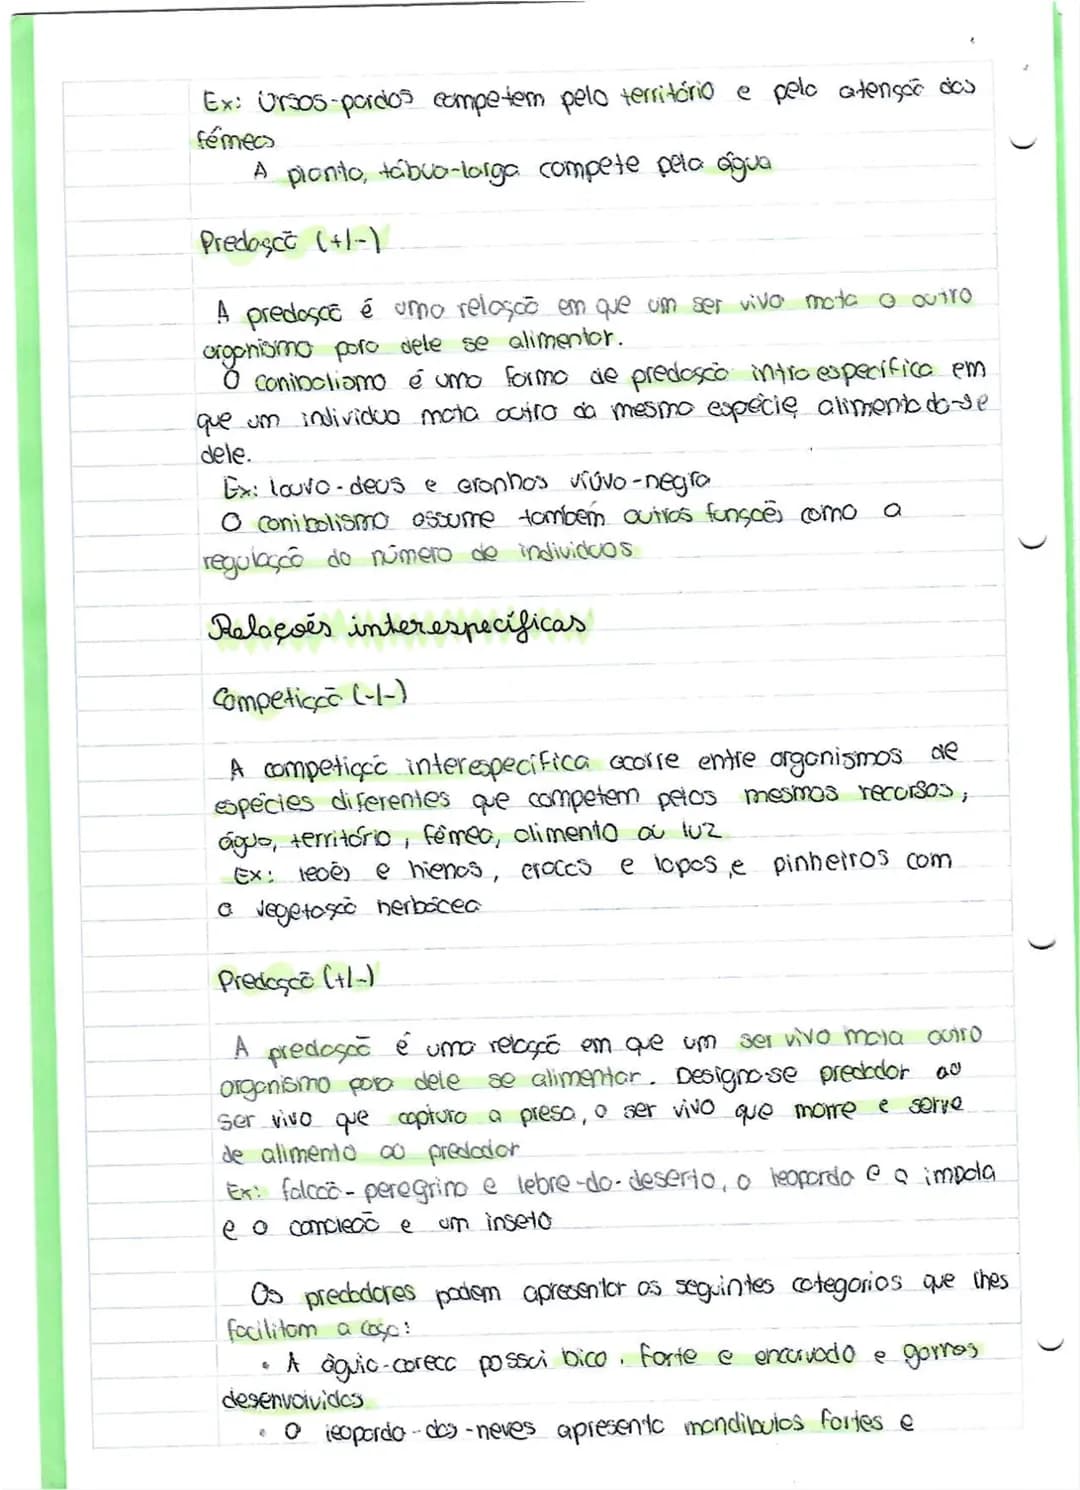 Ex: Ursos-pardos competem pelo território e pela atenção das
fêmeas
A planta, tábua-larga compete pela água
Predação (+/-)
A predação é uma relação em que um ser vivo mata o outro
organismo para dele se alimentar.
O canibalismo é uma forma de predação intraespecífica em
que um individuo mata outro da mesma espécie alimentado-se
dele.
Ex: louva-deus e aranhas viúva-negra
O canibalismo assume também outras funções como a
regulação do número de individuos
Relações interespecíficas
Competição (-/-)
A competição interespecífica ocorre entre organismos de
espécies diferentes que competem pelos mesmos recursos,
água, território, fêmea, alimento ou luz
Ex: leões e hienas, e lapas, e pinheiros com
a vegetação herbácea
Predação (+/-)
A predação é uma relação em que um ser vivo mata outro
organismo para dele se alimentar. Designa-se predador ao
ser vivo que captura a presa, o ser vivo que morre e serve
de alimento ao predador
Ex: falcão-peregrino e lebre-do-deserto, o leopardo e a impala
e o camaleão e um inseto
Os predadores podem apresentar as seguintes categorias que lhes
facilitam a caça:
• A águia-careca possui bico. forte e encurvado e garras
desenvolvidas
• O leopardo-das-neves apresenta mandibulas fortes e